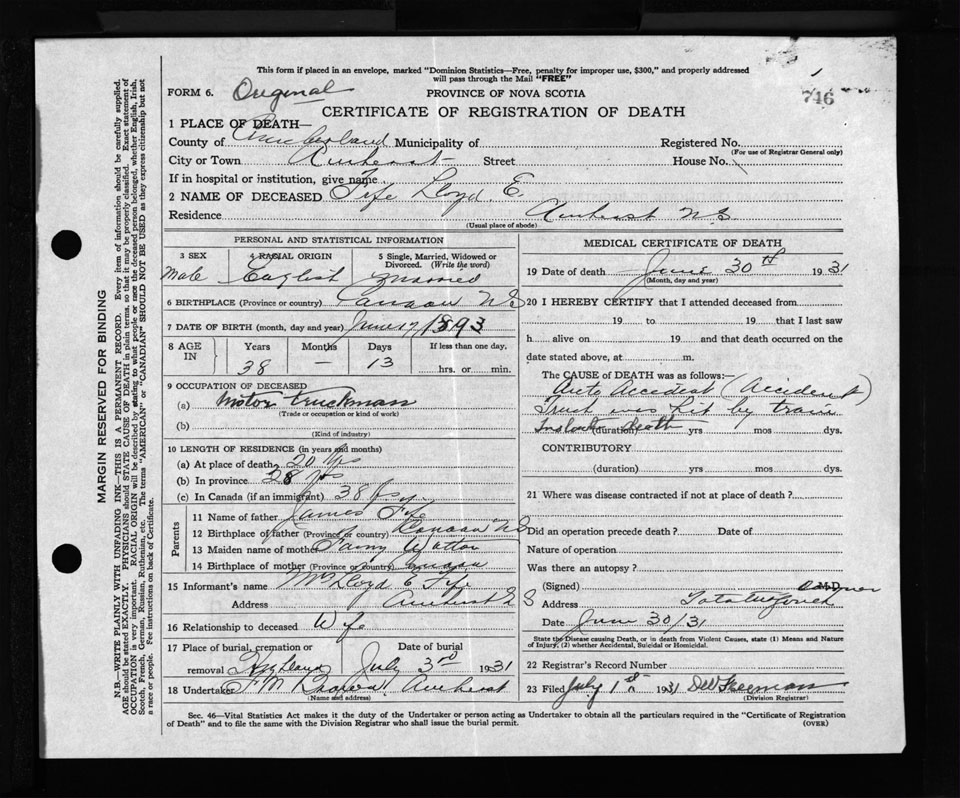 This form if placed in an envelope, marked "Dominion Statistics—Free, penalty for improper use, $300," and properly addressed
will pass through the Mail "FREE"
FORM 6. Original PROVINCE OF NOVA SCOTIA
746
CERTIFICATE OF REGISTRATION OF DEATH
1 PLACE OF DEATH—
County of Cumberland Municipality of Registered No.
(For use of Registrar General only)
City or Town Amherst Street House No.
If in hospital or institution, give name
2 NAME OF DECEASED Fife Lloyd E.
Residence Amherst N.S.
(Usual place of abode)
PERSONAL AND STATISTICAL INFORMATION
3 SEX 4 RACIAL ORIGIN 5 Single, Married, Widowed or
Divorced. (Write the word)
Male English Married
6 BIRTHPLACE (Province or country) Canaan N.S
7 DATE OF BIRTH (month, day and year) June 17, 1893
8 AGE IN Years Months Days If less than one day,
38 — 13 hrs. or min.
9 OCCUPATION OF DECEASED
(a) Motor Truckman
(Trade or occupation or kind of work)
(b)
(Kind of industry)
10 LENGTH OF RESIDENCE (in years and months)
(a) At place of death 20 yrs
(b) In province 28 yrs
(c) In Canada (if an immigrant) 38 yrs.
Parents
11 Name of father James Fife
12 Birthplace of father (Province or country) Canaan N.S
13 Maiden name of mother Fanny
14 Birthplace of mother (Province or country)
15 Informant's name Mrs Lloyd E Fife
Address Amherst N S
16 Relationship to deceased Wife
17 Place of burial, cremation or removal Highland Date of burial July 3rd 1931
18 Undertaker F M Brown Amherst
(Name and address)
MEDICAL CERTIFICATE OF DEATH
19 Date of death June 30th 1931
(Month, day and year)
20 I HEREBY CERTIFY that I attended deceased from
19 to 19 that I last saw
h alive on 19 and that death occurred on the
date stated above, at m.
The CAUSE of DEATH was as follows:
Auto Accident (Accident)
Truck was hit by train
Instant death (duration) yrs mos dys.
CONTRIBUTORY
(duration) yrs mos dys.
21 Where was disease contracted if not at place of death?
Did an operation precede death? Date of
Nature of operation
Was there an autopsy?
(Signed) M.D. Coroner
Address Tatamagouche
Date June 30/31
State the Disease causing Death, or in death from Violent Causes, state (1) Means and Nature
of Injury, (2) whether Accidental, Suicidal or Homicidal.
22 Registrar's Record Number
23 Filed July 1st 1931 Freeman
(Division Registrar)
Sec. 46—Vital Statistics Act makes it the duty of the Undertaker or person acting as Undertaker to obtain all the particulars required in the "Certificate of Registration
of Death" and to file the same with the Division Registrar who shall issue the burial permit. (OVER)
MARGIN RESERVED FOR BINDING
N.B.—WRITE PLAINLY WITH UNFADING INK—THIS IS A PERMANENT RECORD. Every item of information should be carefully supplied.
AGE should be stated EXACTLY. PHYSICIANS should STATE CAUSE OF DEATH in plain terms, so that it may be properly classified. Exact statement of
OCCUPATION is very important. RACIAL ORIGIN will be described by stating to what people or race the deceased person belonged, whether English, Irish,
Scotch, French, German, Russian, Ruthenian, etc. The terms "AMERICAN" or "CANADIAN" SHOULD NOT BE USED as they express citizenship but not
a race or people. Fee instructions on back of Certificate.